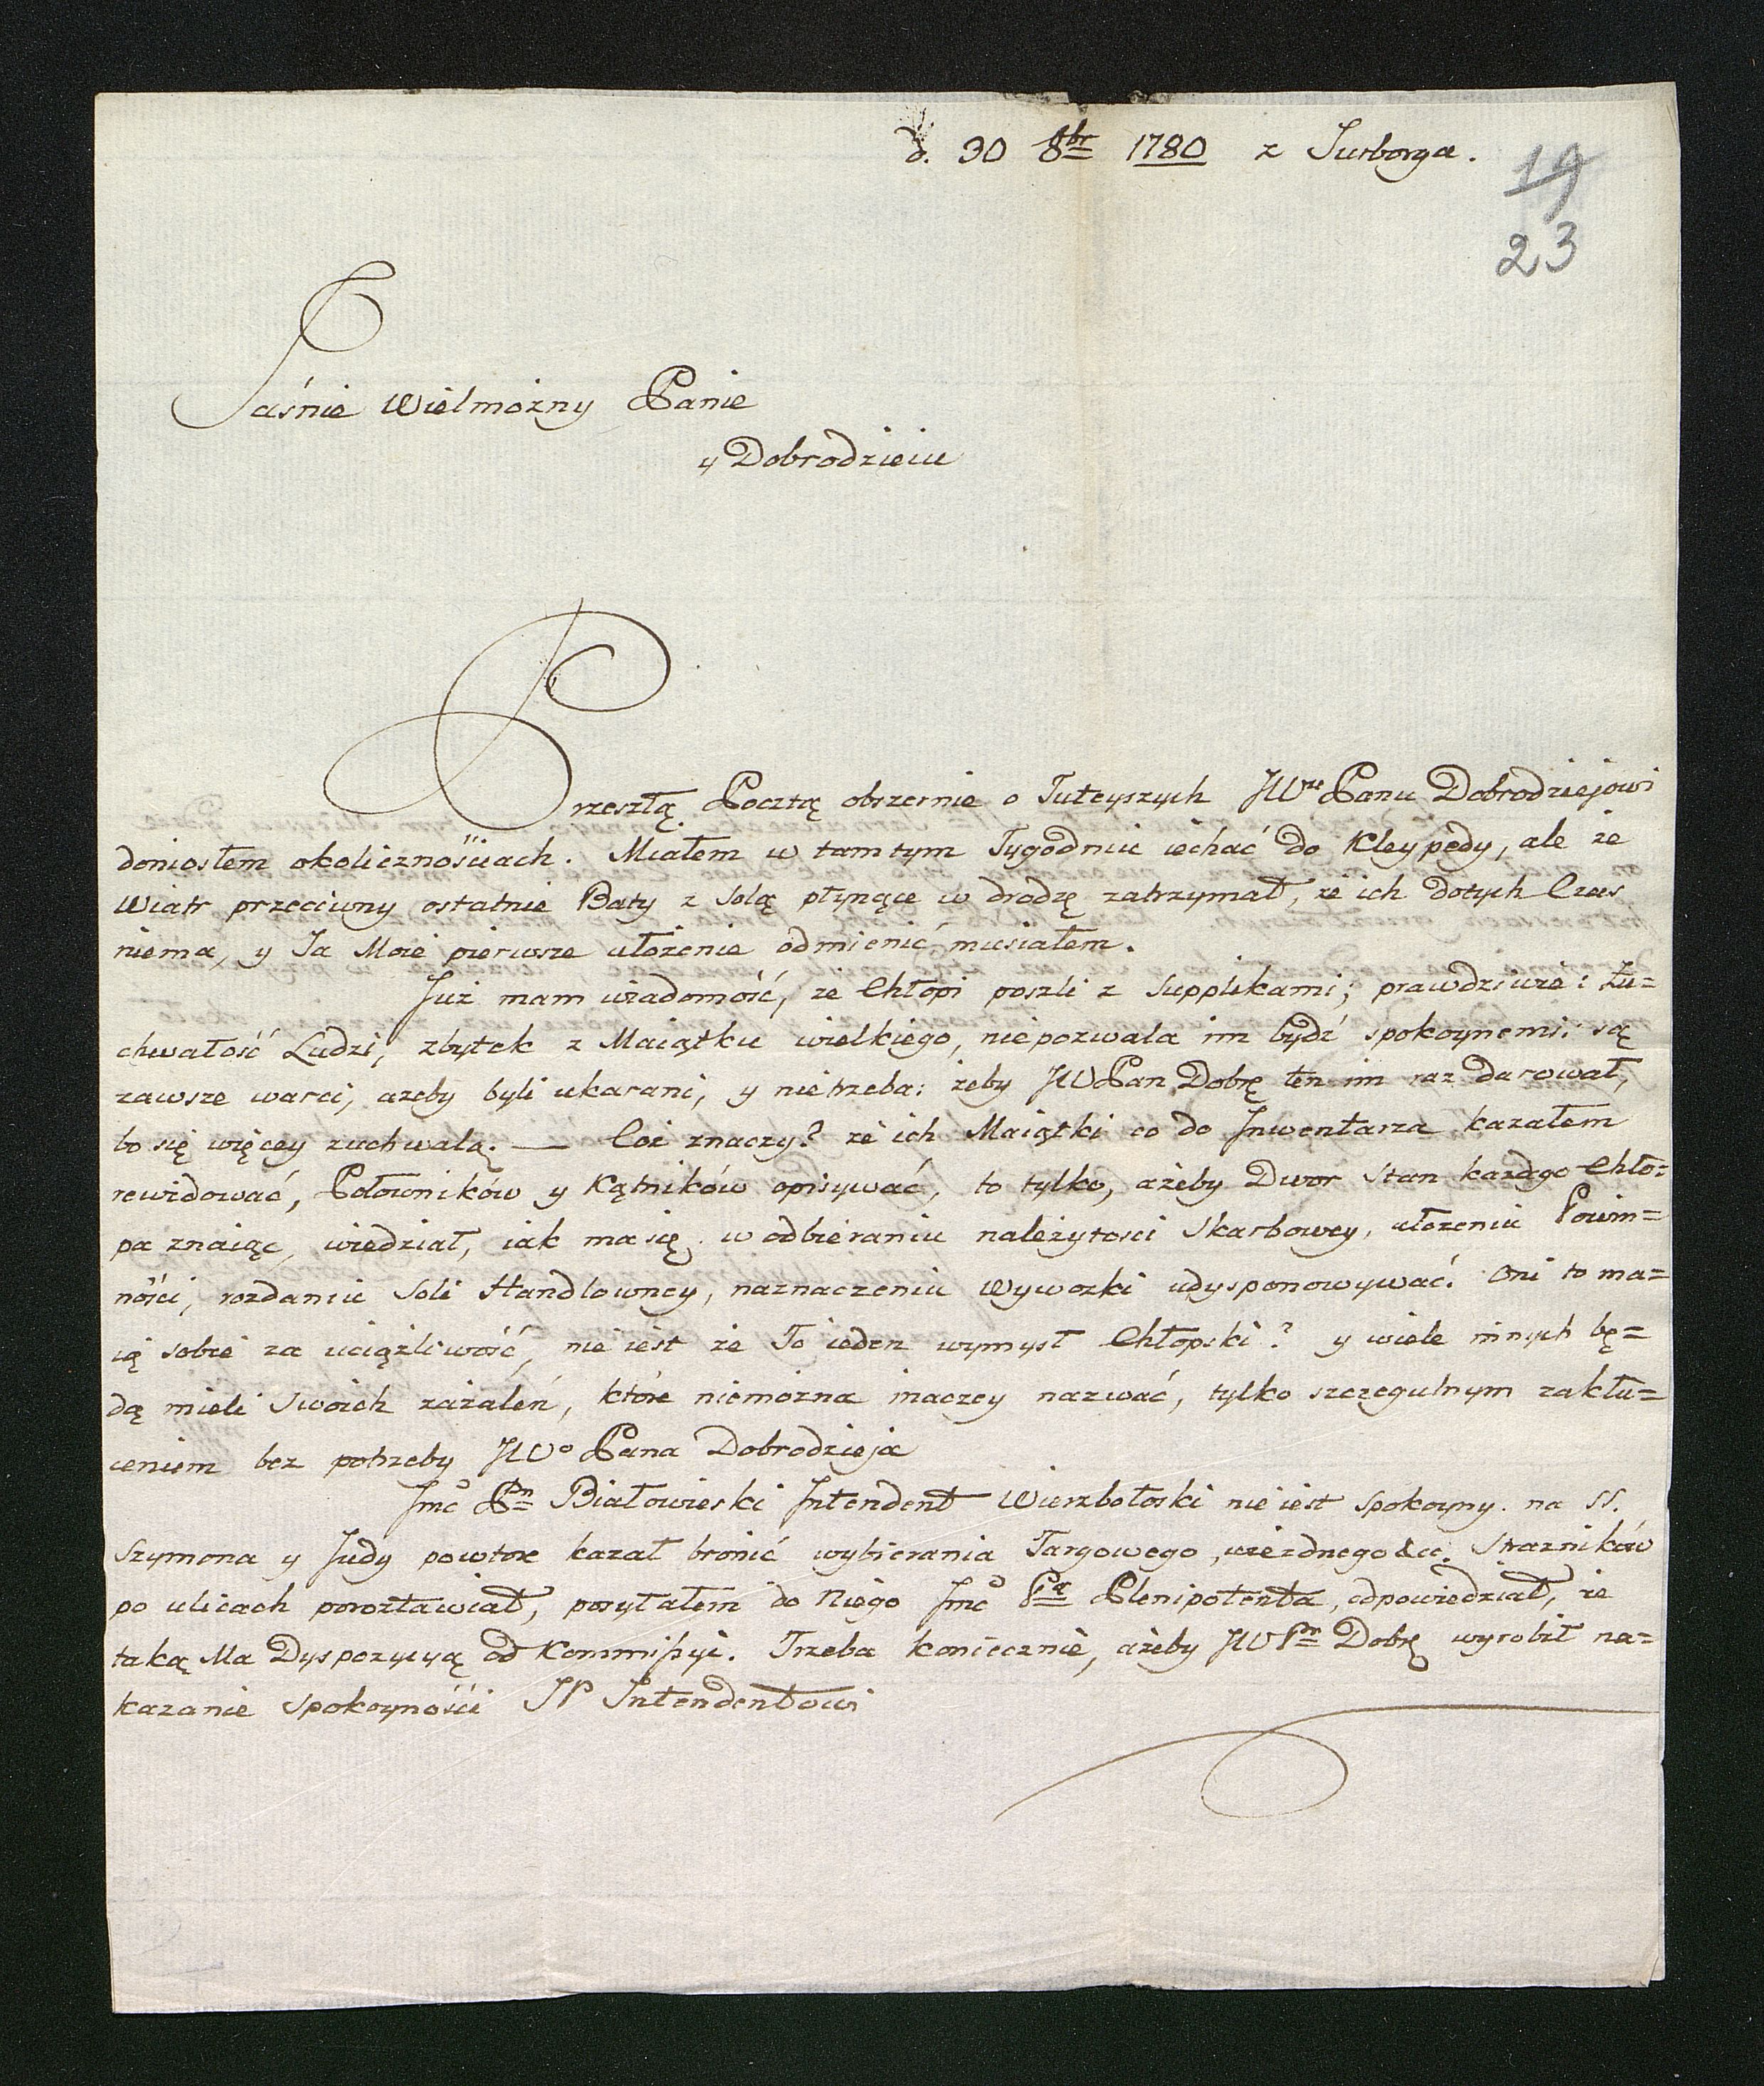 d. 30 8br 1780 z Jurborga.
19
23
Jaśnie Wielmożny Panie
y Dobrodzieiu
Przeszłą Pocztą obszernie o Tuteyszych JWu Panu Dobrodziejowi
doniosłem okolicznościach. Miałem w tamtym Tygodniu iechać do Kleypedy, ale że
Wiatr przeciwny ostatnie Baty z Solą płynące w drodzę zatrzymał, że ich dotych Czas
niema, y Ja Moie pierwsze ułożenie odmienić musiałem.
Już mam wiadomość, że Chłopi poszli z Supplikami; prawdziwie: Zu=
chwałość Ludzi, zbytek z Maiątku wielkiego, niepozwala im bydź spokoynemi: są
zawsze warci, azeby byli ukarani, y nietrzeba: żeby JWPan Dobrę ten im raz darował,
bo się więcey zuchwalą. — Coż znaczy? że ich Maiątki co do Inwentarza kazałem
rewidować, Połowników y Kątników opisywać, to tylko, ażeby Dwor Stan każdgo Chło=
pa znaiąc, wiedział, iak ma się w odbieraniu należytosci Skarbowey, ułożeniu Powin=
ności, rozdaniu Soli Handlowney, naznaczeniu Wywozki udysponowywać. Oni to ma=
ią sobie za uciążliwość, nie iest że To ieden wymysł Chłopski? y wiele innych bę=
dą mieli Swoich zażaleń, które niemożna inaczey nazwać, tylko szczegulnym zakłu=
ceniem bez potrzeby JWo Pana Dobrodzieja
Jmć Pn Białowieski Intendent Wierzbołoski nie iest Spokoyny. na SS.
Szymona y Judy powtore kazał bronić wybierania Targowego, wiezdnego &cc. Strażników
po ulicach porozstawiał, posyłałem do Niego Jmć Pa Plenipotenta, odpowiedział, że
taką Ma Dyspozycyą od Kommissyi. Trzeba koniecznie, ażeby JWPn Dobrę wyrobił na=
kazanie Spokoyności JP Intendentowi